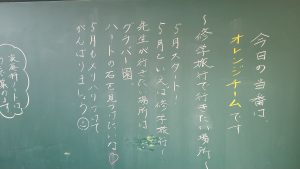 今日の当番は、
オレンジチームです
〜修学旅行で行きたい場所〜
5月スタート!
5月といえば修学旅行!
先生が行きたい場所は
グラバー園
ハートの石を見つけたいな♡
5月もメリハリつけて
がんばりましょう☺